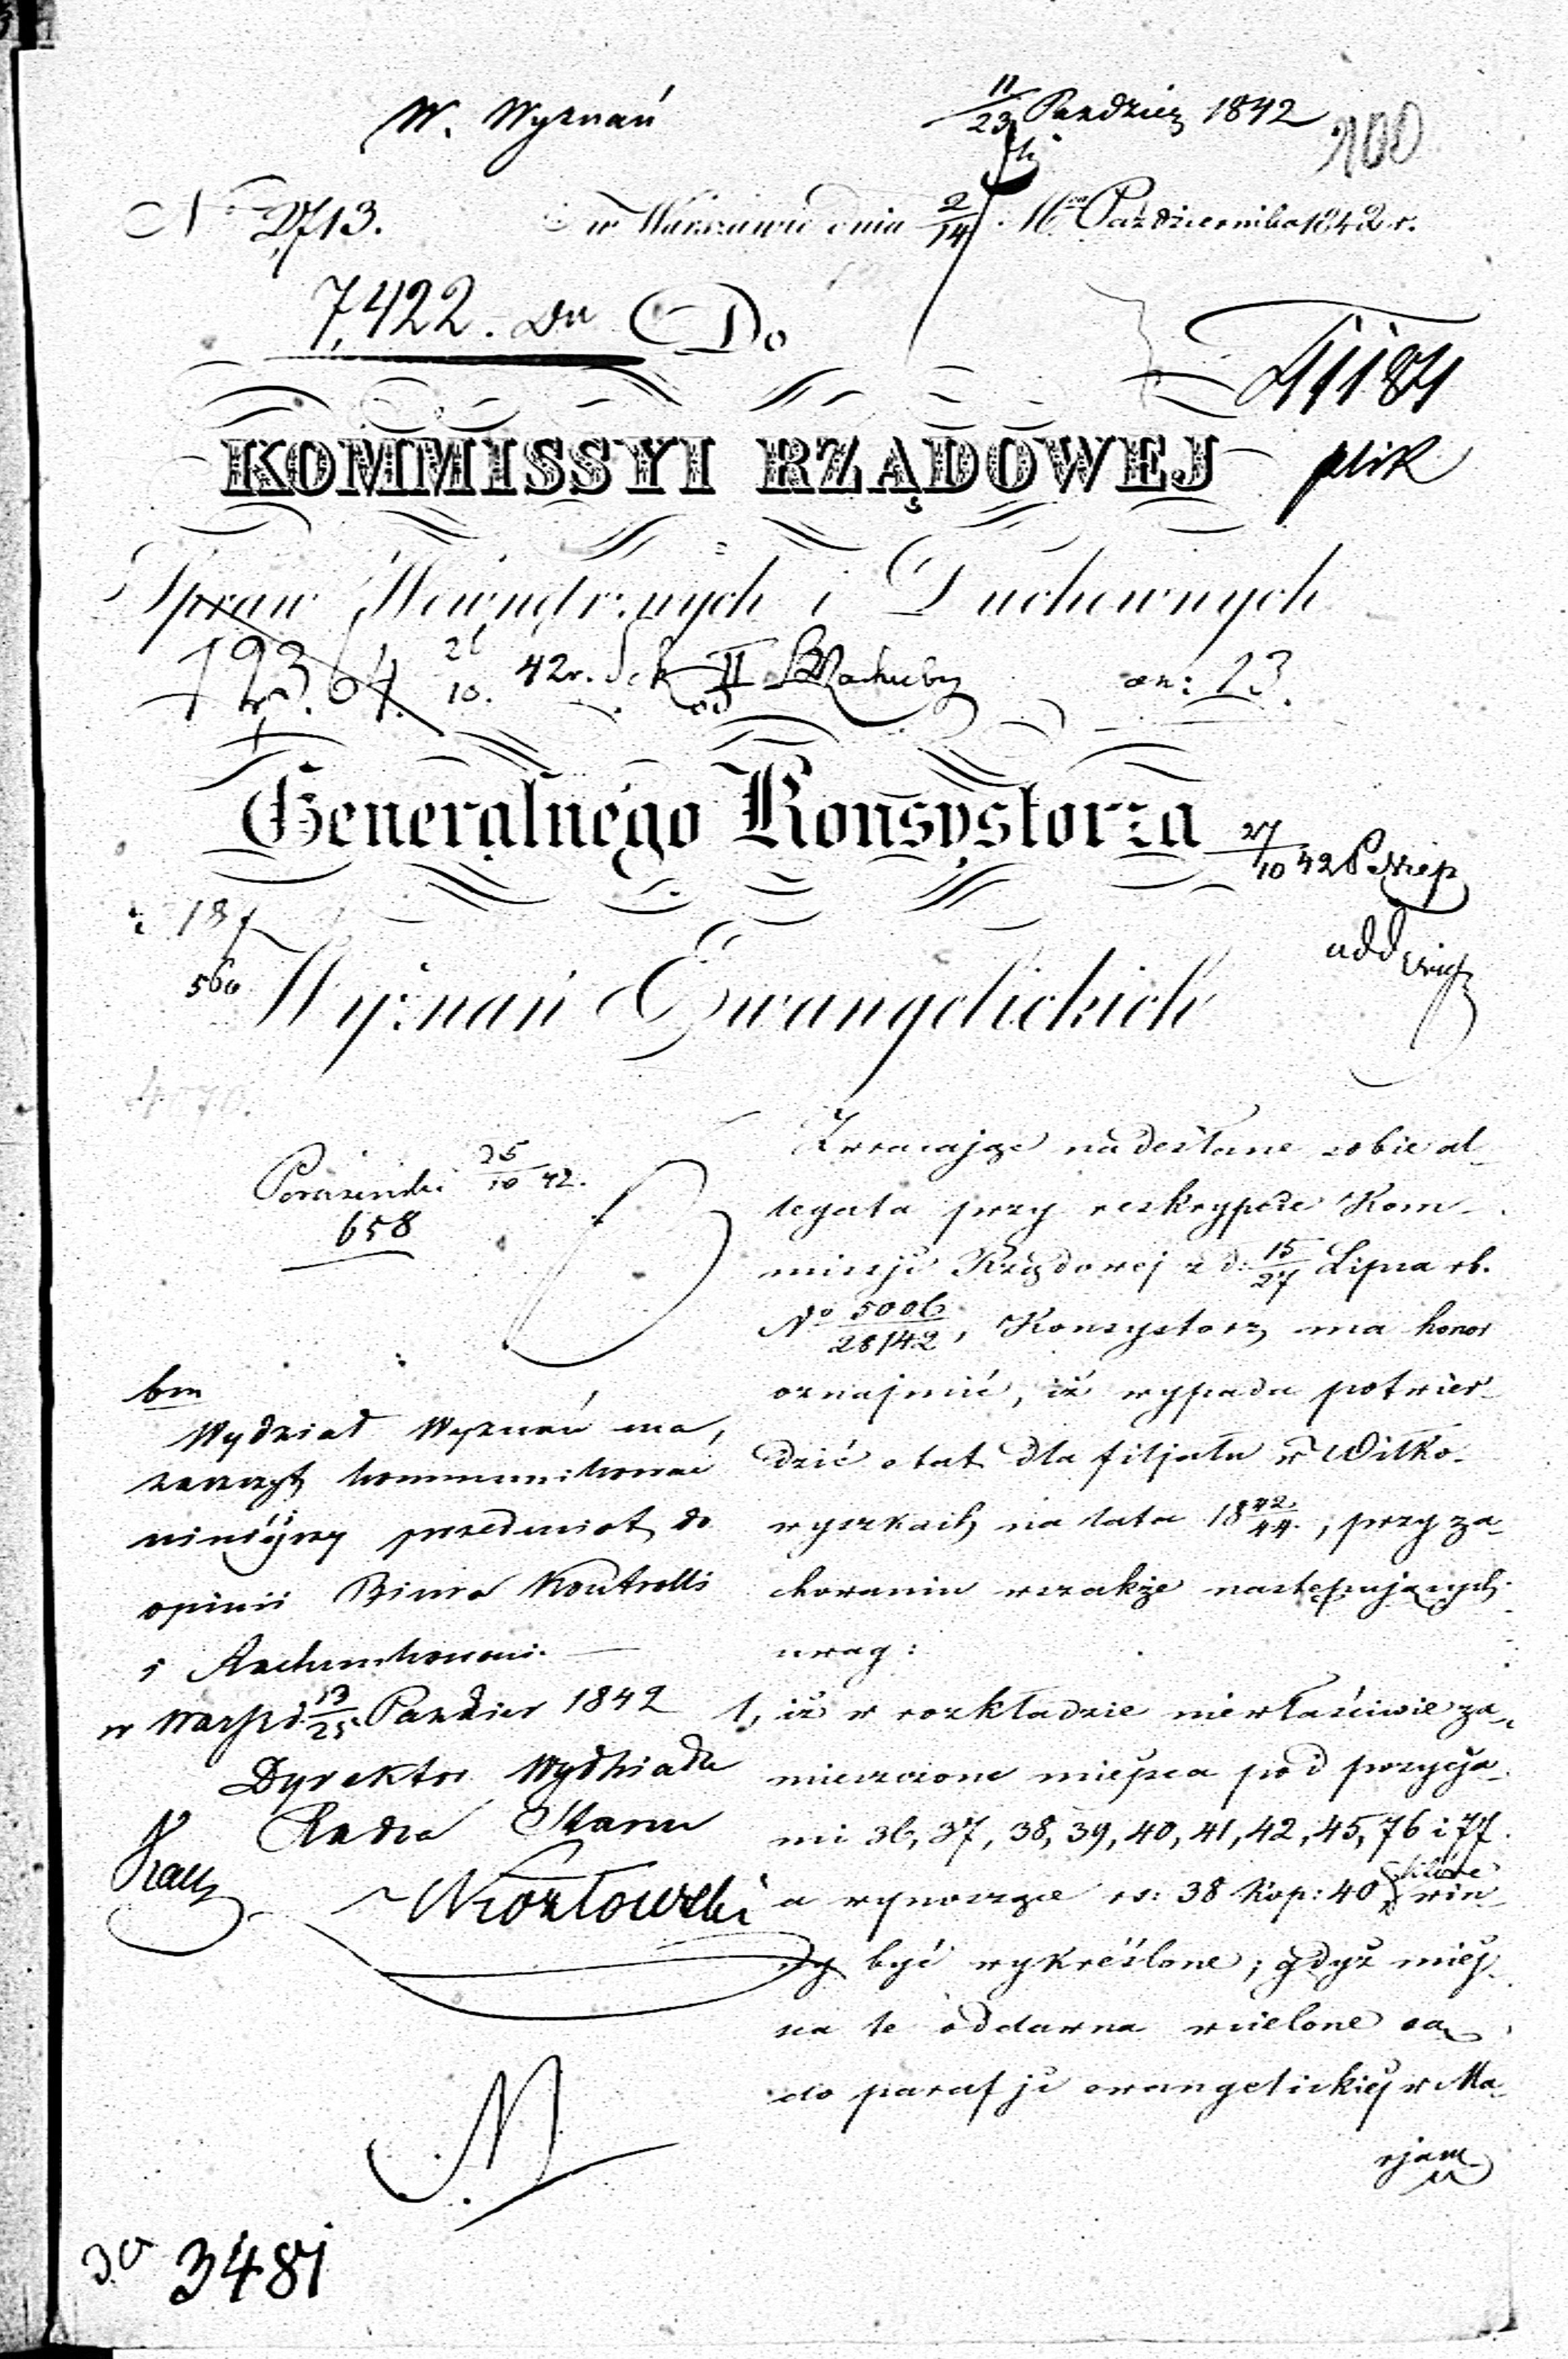 W. Wyznań
11/23 Paździer 1842
100
No 2713.
w Warszawie dnia 2/14 Października 1842 r.
7,422. Do
KOMMISSYI RZĄDOWEJ
plik
Spraw Wewnętrznych i Duchownych
12364. 26/10. 42 r. Sek II
an: 13.
od
Generalnego Konsystorza
27/10 42
187
560
Wyznań Ewangelickich
25/10 42.
658
Zwracając nadesłane sobie al-
legata przy reskrypcie Kom-
missji Rządowej z d: 15/27 Lipca rb.
No 5006/28142, Konsystorz ma honor
oznajmić, iż wypada potwier-
dzić etat dla filjału w Wiłko-
wyszkach na lata 18 42/44., przy za-
chowaniu wszakże następujących
uwag:
1, iż w rozkładzie niewłaściwie za-
mieszczone miejsca pod pozycja-
mi 36, 37, 38, 39, 40, 41, 42, 45, 76 i 77.
a wynoszące rs: 38 kop: 40 które win-
ny być wykreślone; gdyż miej-
sca te oddawna wcielone są
do parafji ewangelickiej w Ma-
rjam
bm
Wydział Wyznań ma
zaszczyt kommunikować
niniejszy przedmiot do
opinii Biura Kontrolli
i Rachunkowości.
w Warsz d. 13/25 Paździer 1842
Dyrektor Wydziału
Radca Stanu
Kozłowski
3487